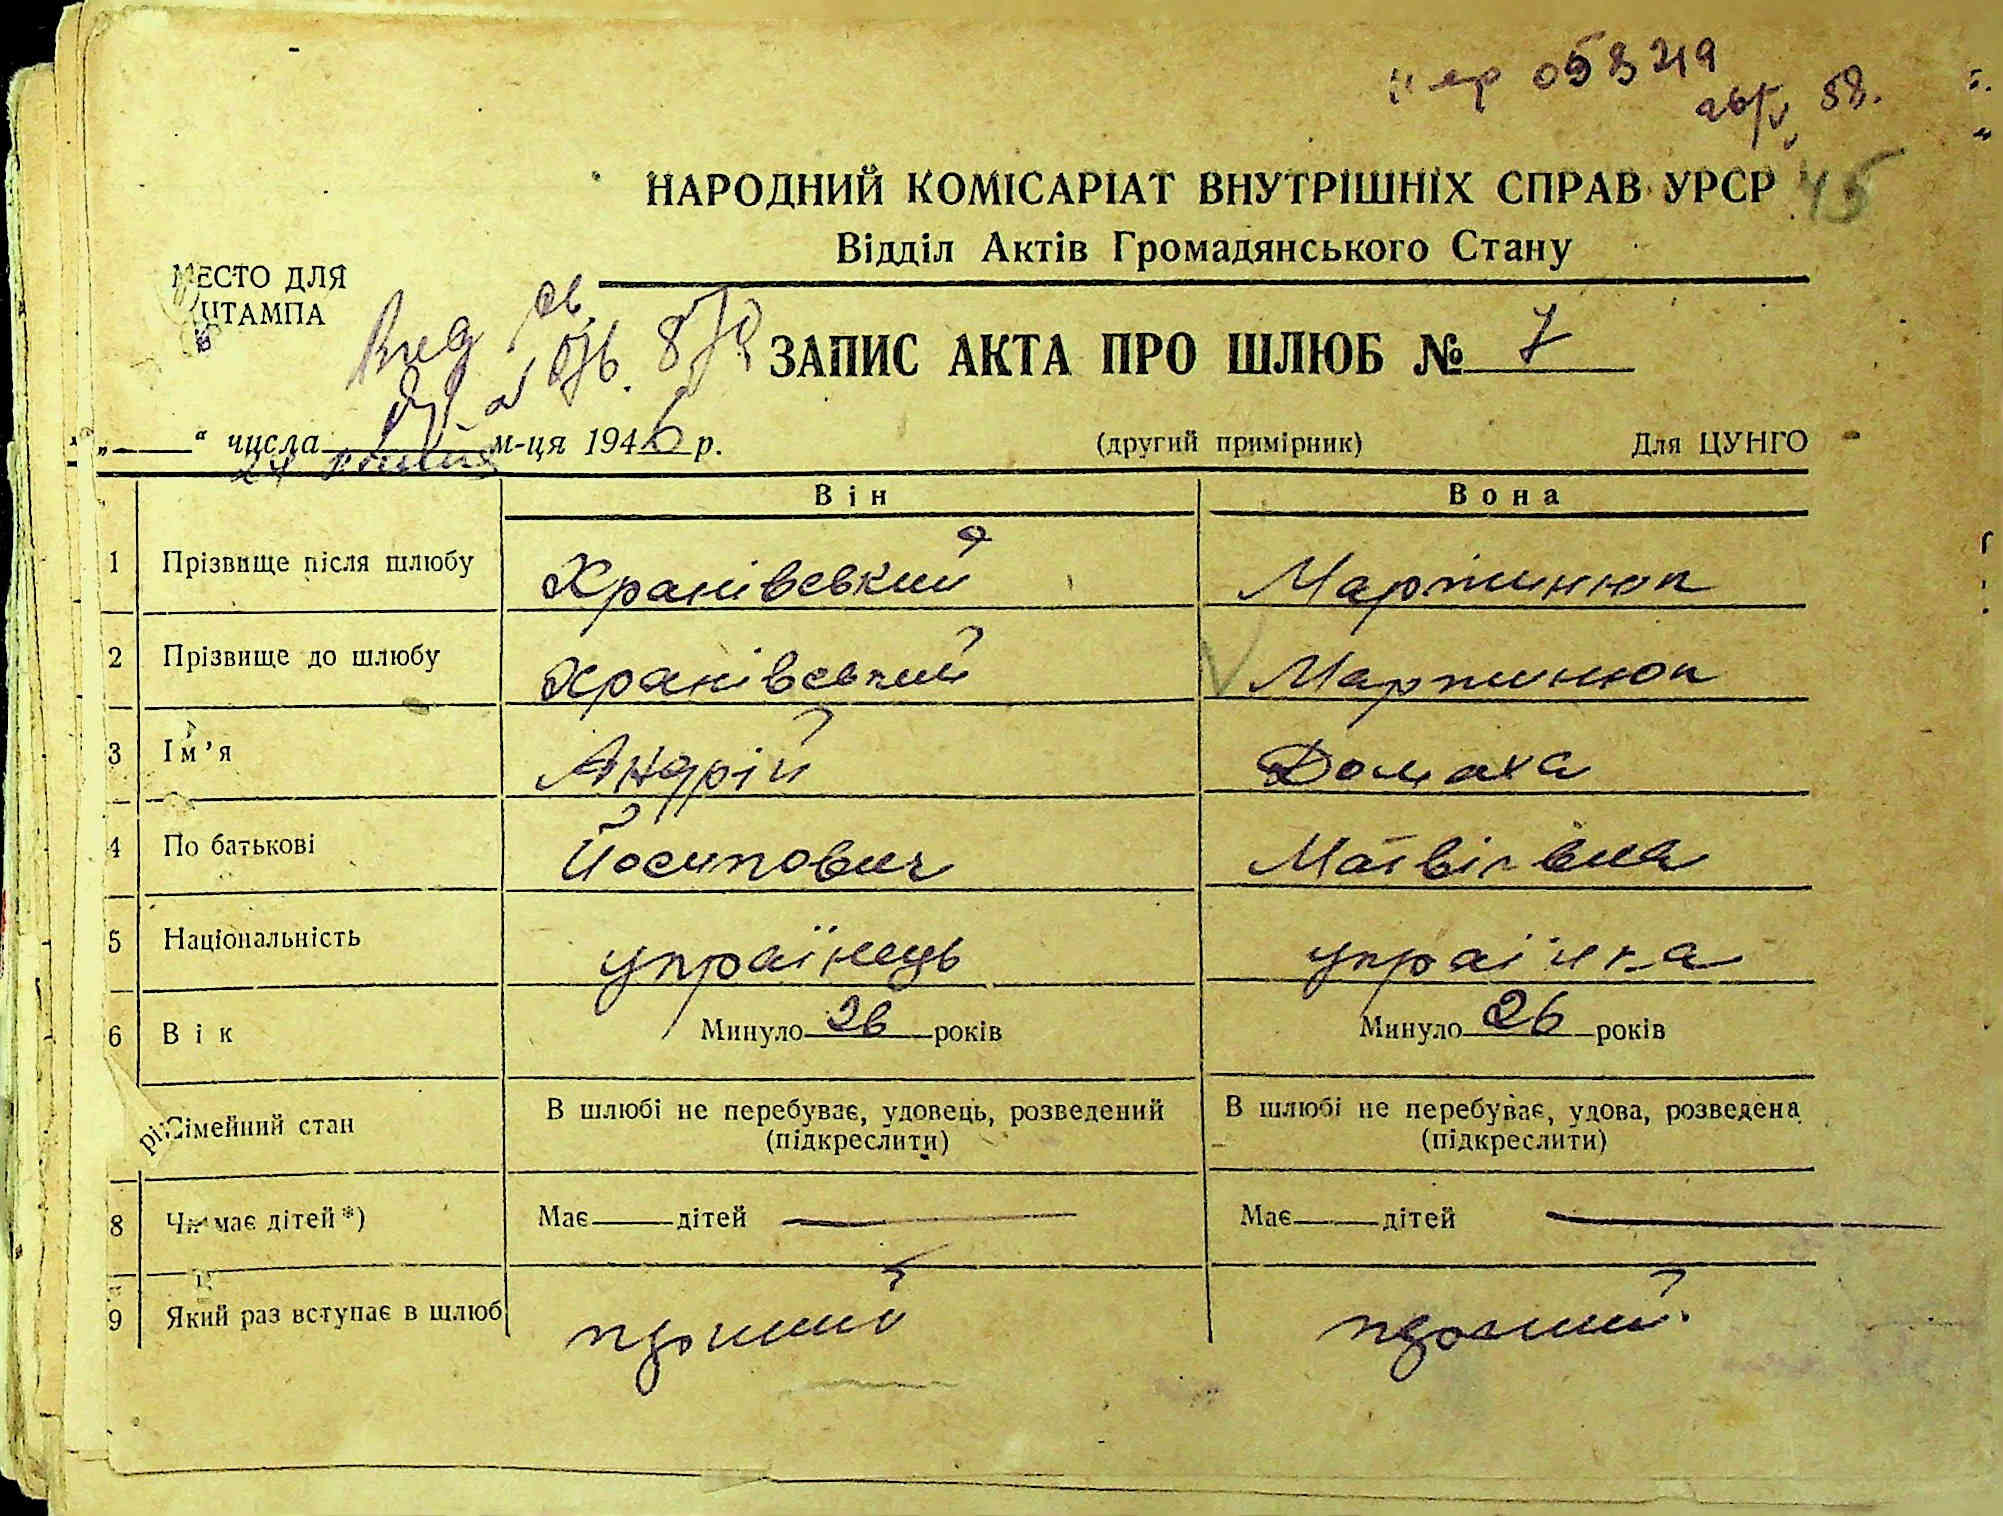 053219
58.
НАРОДНИЙ КОМІСАРІАТ ВНУТРІШНІХ СПРАВ УРСР 45
Відділ Актів Громадянського Стану
МЕСТО ДЛЯ
ШТАМПА
ЗАПИС АКТА ПРО ШЛЮБ № 7
„ “ числа м-ця 1946 р. (другий примірник) Для ЦУНГО
Він Вона
1 Прізвище після шлюбу Хранівський Мартинюк
2 Прізвище до шлюбу Хранівський Мартинюк
3 Ім’я Андрій Домаха
4 По батькові Йосипович Матвіївна
5 Національність українець українка
6 Вік Минуло 26 років Минуло 26 років
Сімейний стан В шлюбі не перебуває, удовець, розведений (підкреслити) В шлюбі не перебуває, удова, розведена (підкреслити)
8 Чи має дітей *) Має дітей — Має дітей —
9 Який раз вступає в шлюб